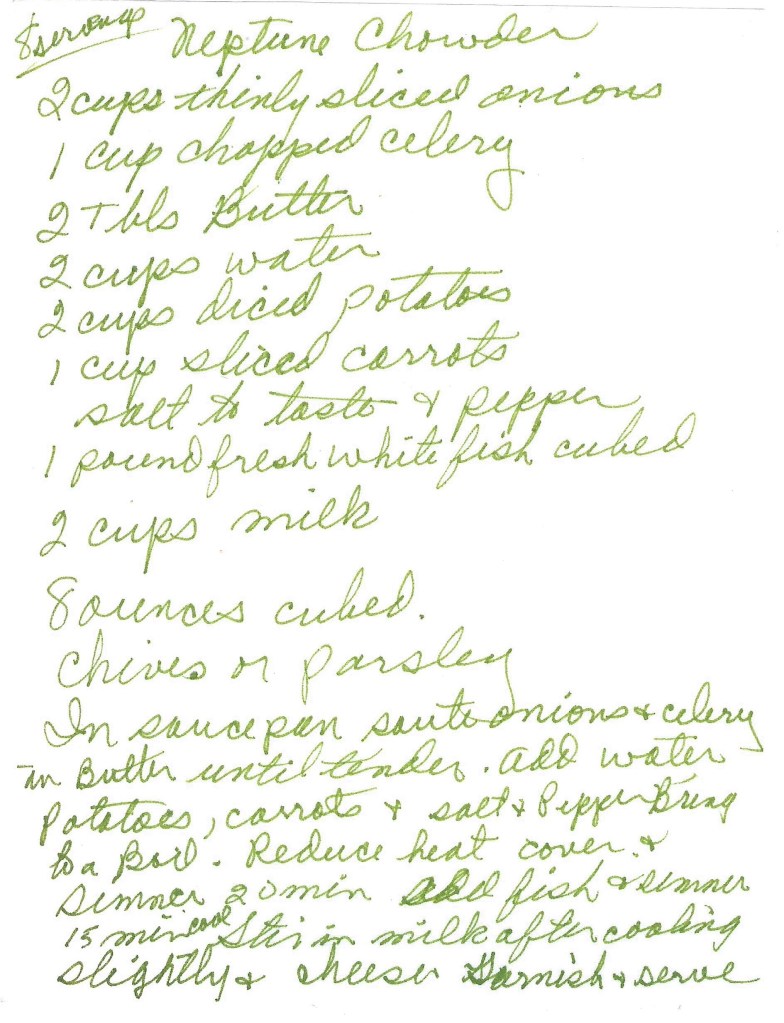 8 servings Neptune Chowder
2 cups thinly sliced onions
1 cup chopped celery
2 Tbls Butter
2 cups water
2 cups diced potatoes
1 cup sliced carrots
salt to taste & pepper
1 pound fresh white fish cubed
2 cups milk
8 ounces cubed.
Chives or parsley
In saucepan saute onions & celery
in Butter until tender. add water
potatoes, carrots & salt & Pepper Bring
to a Boil. Reduce heat cover. &
simmer 20 min add fish & simmer
15 min cool Stir in milk after cooling
slightly & cheese Garnish & serve